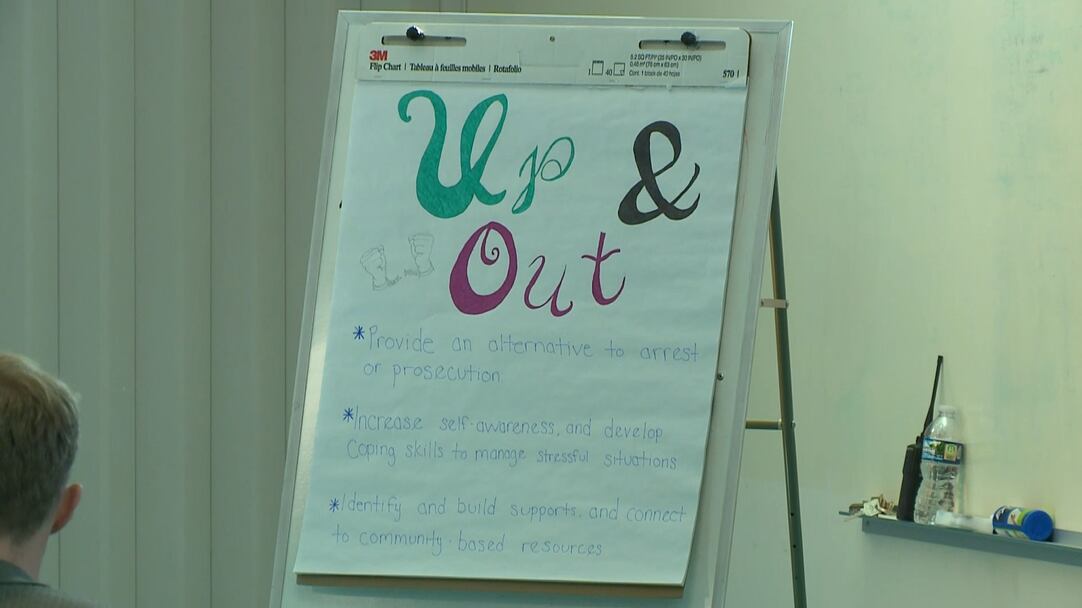 3M
Flip Chart | Tableau à feuilles mobiles | Rotafolio
5.2 SQ FT/PI² (25 IN/PO x 30 IN/PO)
Cont. 1 block de 40 hojas
570
Up &
Out
*Provide an alternative to arrest
or prosecution.
*Increase self-awareness, and develop
Coping skills to manage stressful situations
*Identify and build supports, and connect
to community-based resources